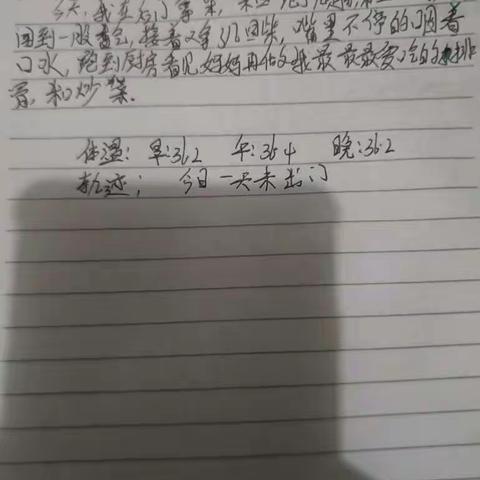 今天,我在后门
回到一股香气,接着又拿几回柴,嘴里不停的咽着
口水,跑到厨房看见妈妈再做我最最最爱吃的排
骨和炒菜.
体温: 早:36.2 午:36.4 晚:36.2
轨迹; 今日一天未出门